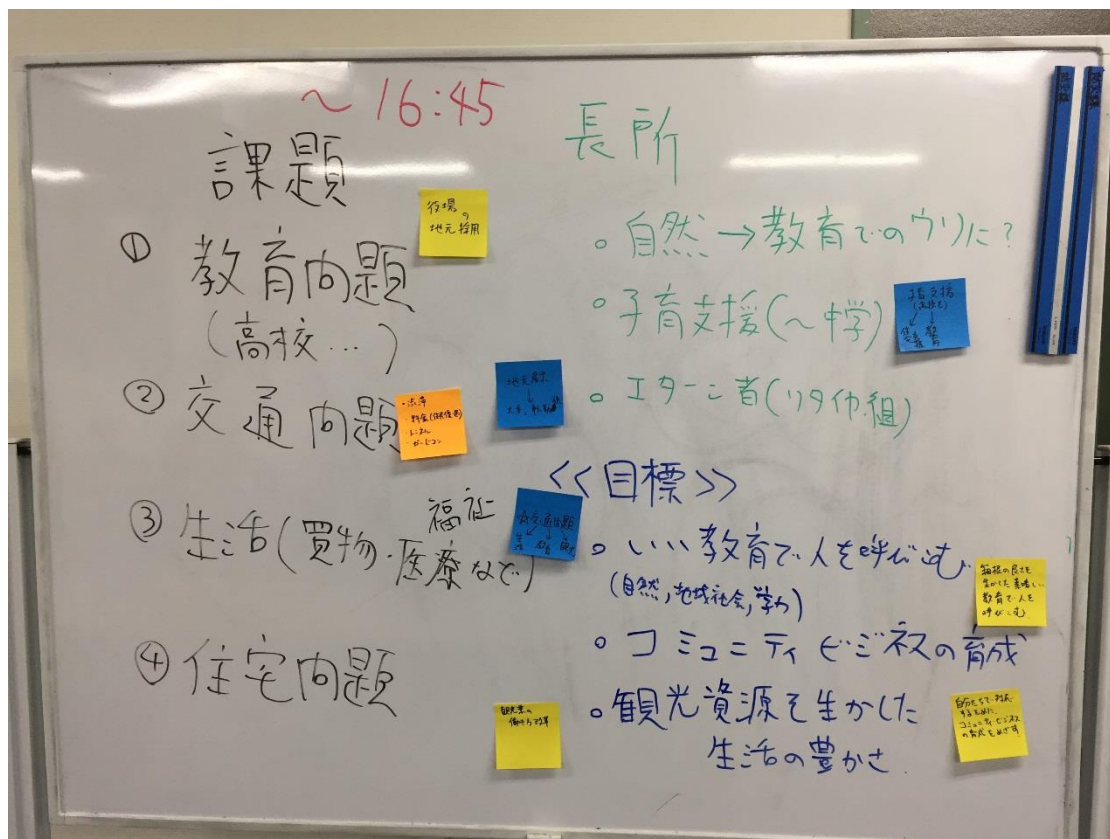 ～16:45
課題
① 教育問題
(高校…)
② 交通問題
③ 生活(買物・医療など)
福祉
④ 住宅問題
役場
の
地元採用
・渋滞
・料金(住民優遇)
地元雇用
観光業の
働き方改革
長所
○自然→教育でのウリに?
○子育支援(～中学)
○エターン者(リタイヤ組)
子育支援
<<目標>>
○いい教育で人を呼びこむ
(自然,地域社会,学力)
○コミュニティビジネスの育成
○観光資源を生かした
生活の豊かさ
箱根の良さを
生かした素晴しい
教育で人を
呼びこむ
コミュニティビジネス
の育成をめざす